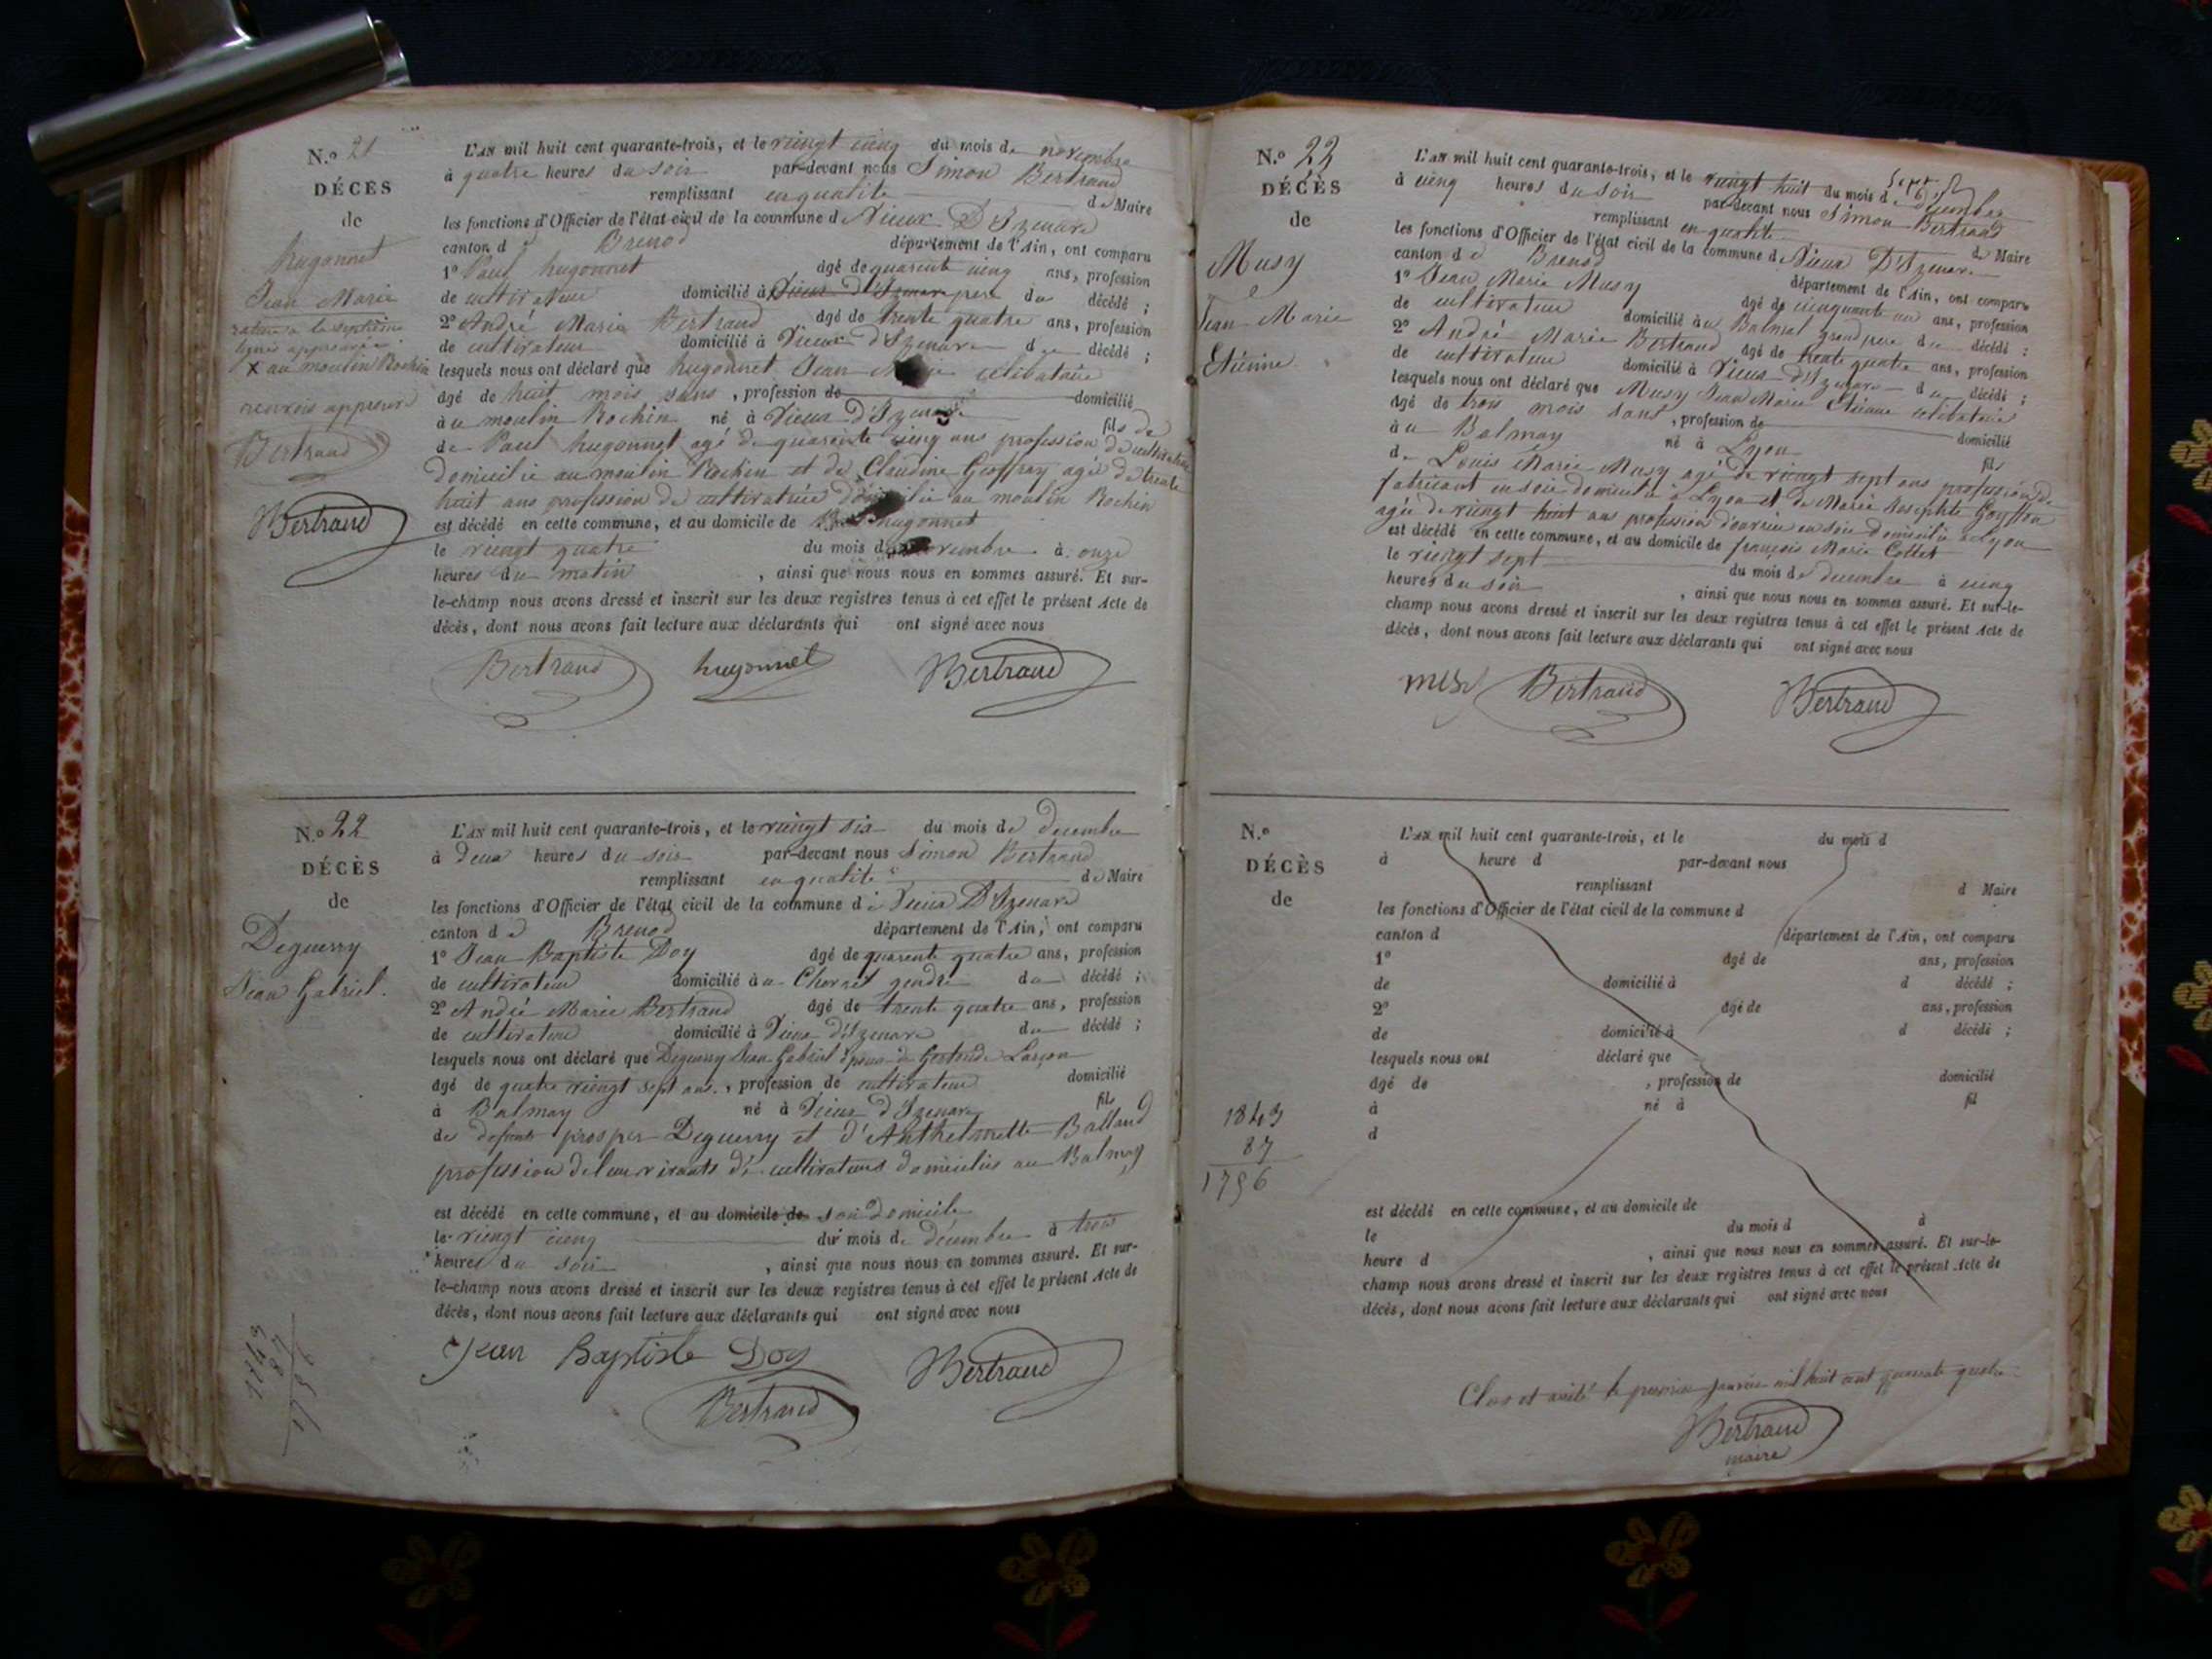 N.º 21
DÉCÈS
de
hugonnet
Jean Marie
rature a la septième
lignes approuvée
X au moulin Rochin
renvois approuvé
Bertrand
Bertrand
L'AN mil huit cent quarante-trois, et le vingt cinq du mois de novembre
à quatre heures du soir par-devant nous Simon Bertrand
remplissant en qualité de Maire
les fonctions d'Officier de l'état civil de la commune de Vieux D'Izenave
canton de Brenod département de l'Ain, ont comparu
1º Paul hugonnet âgé de quarente cinq ans, profession
de cultivateur domicilié à Vieux d'Izenave pere du décédé ;
2º André Marie Bertrand âgé de trente quatre ans, profession
de cultivateur domicilié à Vieux d'Izenave d décédé ;
lesquels nous ont déclaré que hugonnet Jean Marie celibataire
âgé de huit mois sans , profession de domicilié
à u moulin Rochin né à Vieux d'Izenave fils de
de Paul hugonnet agé de quarente cinq ans profession de cultivateur
domicilié au moulin Rochin et de Claudine Geoffray agé de trente
huit ans profession de cultivatrice domicilié au moulin Rochin
est décédé en cette commune, et au domicile de hugonnet
le vingt quatre du mois de novembre à onze
heures du matin , ainsi que nous nous en sommes assuré. Et sur-
le-champ nous avons dressé et inscrit sur les deux registres tenus à cet effet le présent Acte de
décès, dont nous avons fait lecture aux déclarants qui ont signé avec nous
Bertrand hugonnet Bertrand
N.º 22
DÉCÈS
de
Deguerry
Jean Gabriel.
L'AN mil huit cent quarante-trois, et le vingt six du mois de decembre
à deux heures du soir par-devant nous Simon Bertrand
remplissant en qualité de Maire
les fonctions d'Officier de l'état civil de la commune de Vieux D'Izenave
canton de Brenod département de l'Ain, ont comparu
1º Jean Baptiste Doy âgé de quarente quatre ans, profession
de cultivateur domicilié à u Chornet gendre du décédé ;
2º André Marie Bertrand âgé de trente quatre ans, profession
de cultivateur domicilié à Vieux d'Izenave du décédé ;
lesquels nous ont déclaré que Deguerry Jean Gabriel époux de Gertrude Larçon
âgé de quatre vingt sept ans , profession de cultivateur domicilié
à Balmay né à Vieux d'Izenave fils
de defunts prosper Deguerry et d'Anthelmette Balland
profession de leur vivants de cultivateurs domiciliés au Balmay
est décédé en cette commune, et au domicile de son domicile
le vingt cinq du mois de décembre à trois
heures du soir , ainsi que nous nous en sommes assuré. Et sur-
le-champ nous avons dressé et inscrit sur les deux registres tenus à cet effet le présent Acte de
décès, dont nous avons fait lecture aux déclarants qui ont signé avec nous
Jean Baptiste Doy Bertrand
Bertrand
1843
87
1756
N.º 22
DÉCÈS
de
Musy
Jean Marie
Etienne.
L'AN mil huit cent quarante-trois, et le vingt huit du mois de decembre
à cinq heures du soir par-devant nous Simon Bertrand
remplissant en qualité de Maire
les fonctions d'Officier de l'état civil de la commune de Vieux D'Izenave
canton de Brenod département de l'Ain, ont comparu
1º Jean Marie Musy âgé de cinquante un ans, profession
de cultivateur domicilié à u Balmat grand pere du décédé ;
2º André Marie Bertrand âgé de trente quatre ans, profession
de cultivateur domicilié à Vieux d'Izenave du décédé ;
lesquels nous ont déclaré que Musy Jean Marie Etienne celibataire
âgé de trois mois sans , profession de domicilié
à u Balmay né à Lyon fils
de Louis Marie Musy agé de vingt sept ans profession de
fabricant en soie domicilié à Lyon et de Marie Josephte Goyffon
agée de vingt huit ans profession d'ouvriere en soie domicilié à Lyon
est décédé en cette commune, et au domicile de françois Marie Collet
le vingt sept du mois de decembre à cinq
heures du soir , ainsi que nous nous en sommes assuré. Et sur-le-
champ nous avons dressé et inscrit sur les deux registres tenus à cet effet le présent Acte de
décès, dont nous avons fait lecture aux déclarants qui ont signé avec nous
Bertrand Bertrand
N.º
DÉCÈS
de
1843
87
1756
L'AN mil huit cent quarante-trois, et le du mois d
à heure d par-devant nous
remplissant d Maire
les fonctions d'Officier de l'état civil de la commune d
canton d département de l'Ain, ont comparu
1º âgé de ans, profession
de domicilié à d décédé ;
2º âgé de ans, profession
de domicilié à d décédé ;
lesquels nous ont déclaré que
âgé de , profession de domicilié
à né à fil
d
est décédé en cette commune, et au domicile de
le du mois d à
heure d , ainsi que nous nous en sommes assuré. Et sur-le-
champ nous avons dressé et inscrit sur les deux registres tenus à cet effet le présent Acte de
décès, dont nous avons fait lecture aux déclarants qui ont signé avec nous
Clos et arrêté le premier janvier mil huit cent quarante quatre
Bertrand
maire